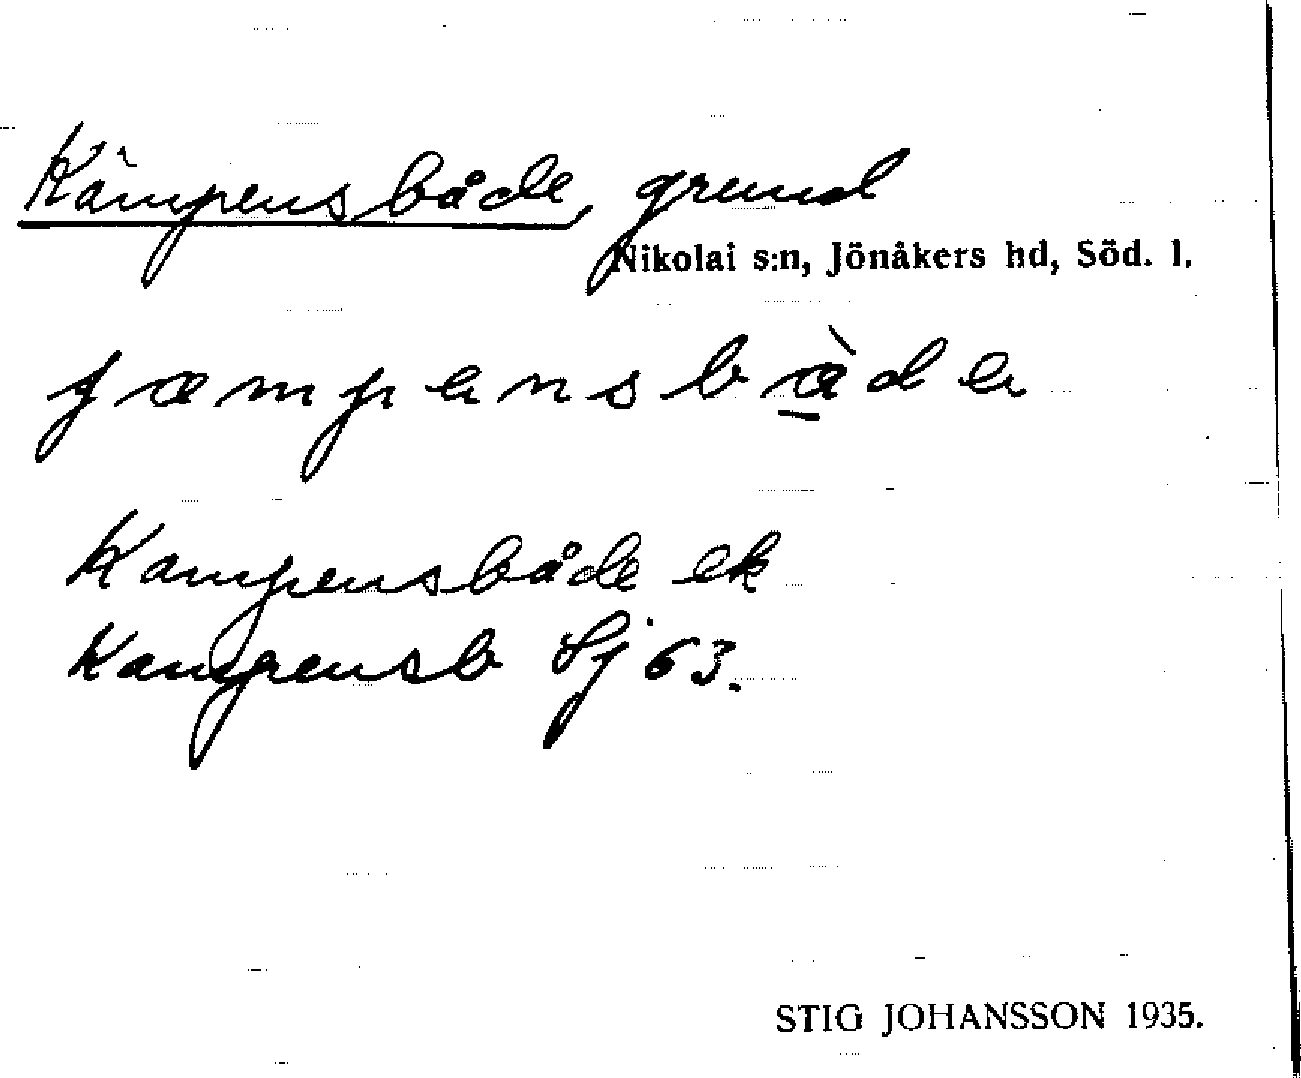 Kämpensbåde, grund
Nikolai s:n, Jönåkers hd, Söd. l.
jæmpensbå̱̀de
Kampensbåde ek
Kampensb Sj 63.
STIG JOHANSSON 1935.